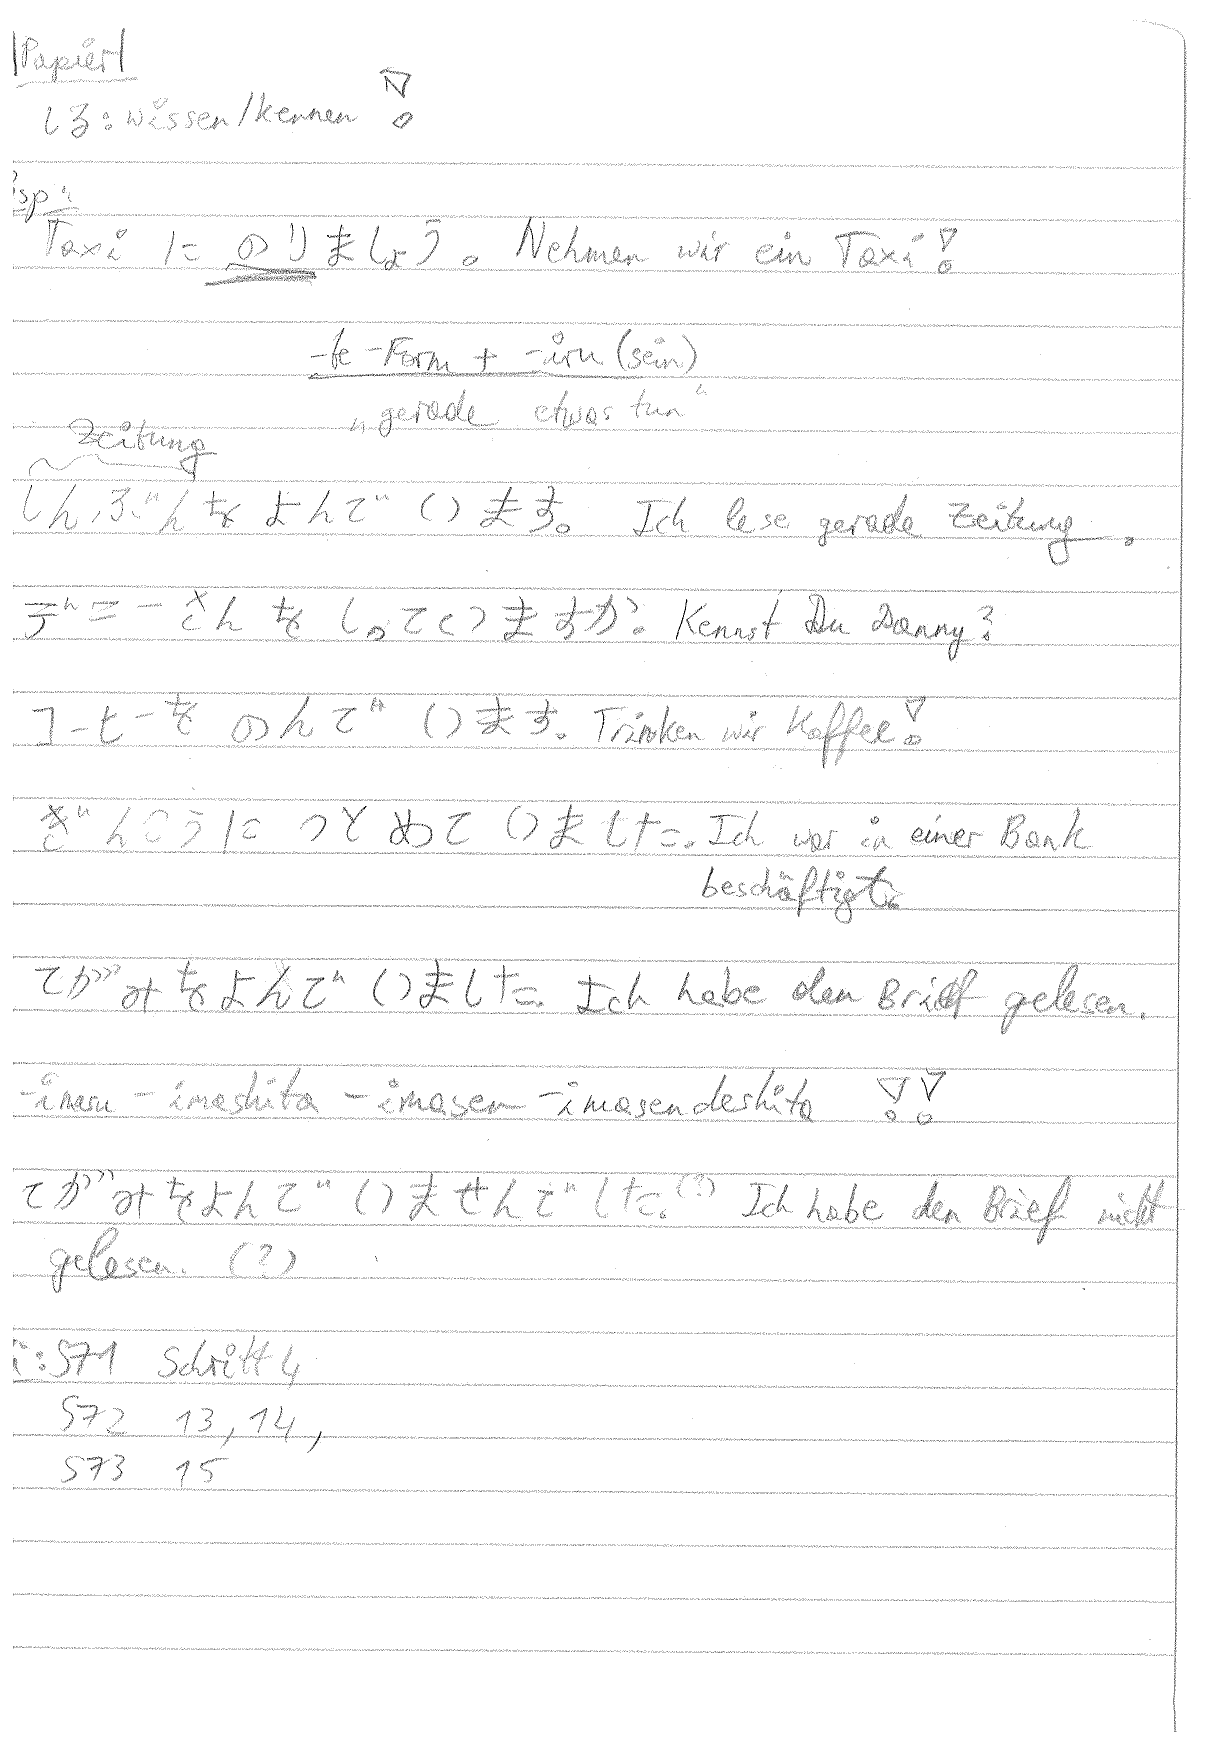 |Papier|
しる: wissen/kennen !
Bsp:
Taxi に のりましょう。 Nehmen wir ein Taxi!
-te-Form + -iru (sein)
„gerade etwas tun“
Zeitung
しんぶんをよんでいます。 Ich lese gerade Zeitung.
デニーさんをしっていますか。 Kennst Du Danny?
コーヒーをのんでいます。 Trinken wir Kaffee!
ぎんこうにつとめていました。 Ich war in einer Bank
beschäftigt.
てがみをよんでいました。 Ich habe den Brief gelesen.
-imasu -imashita -imasen -imasendeshita !!
てがみをよんでいませんでした。(?) Ich habe den Brief nicht
gelesen. (?)
: S71 Schritt 4
S72 13, 14,
S73 15